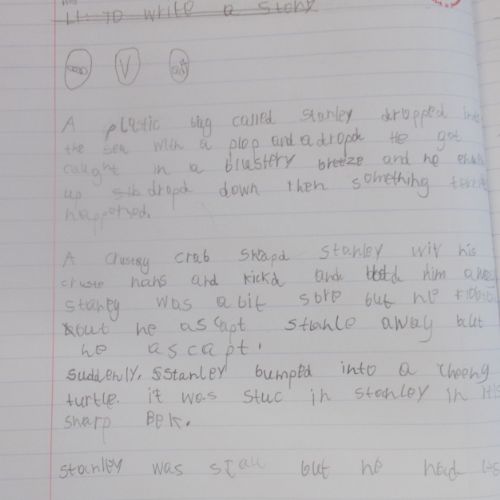 LI: TO write a story
V
A plastic bag called stanley dropped
the sea with a plop and a dropde He got
caught in a blustery breeze and he
up dropd down then something
happened.
A crab snapd stanley wiv his
hans and kickd and him
stanley was a bit sore but he
but he ascapt stanle away but
he ascapt.
suddenly, stanley bumped into a cheeng
turtle. it was stuc in stanley in its
sharp BeK.
stanley was but he had